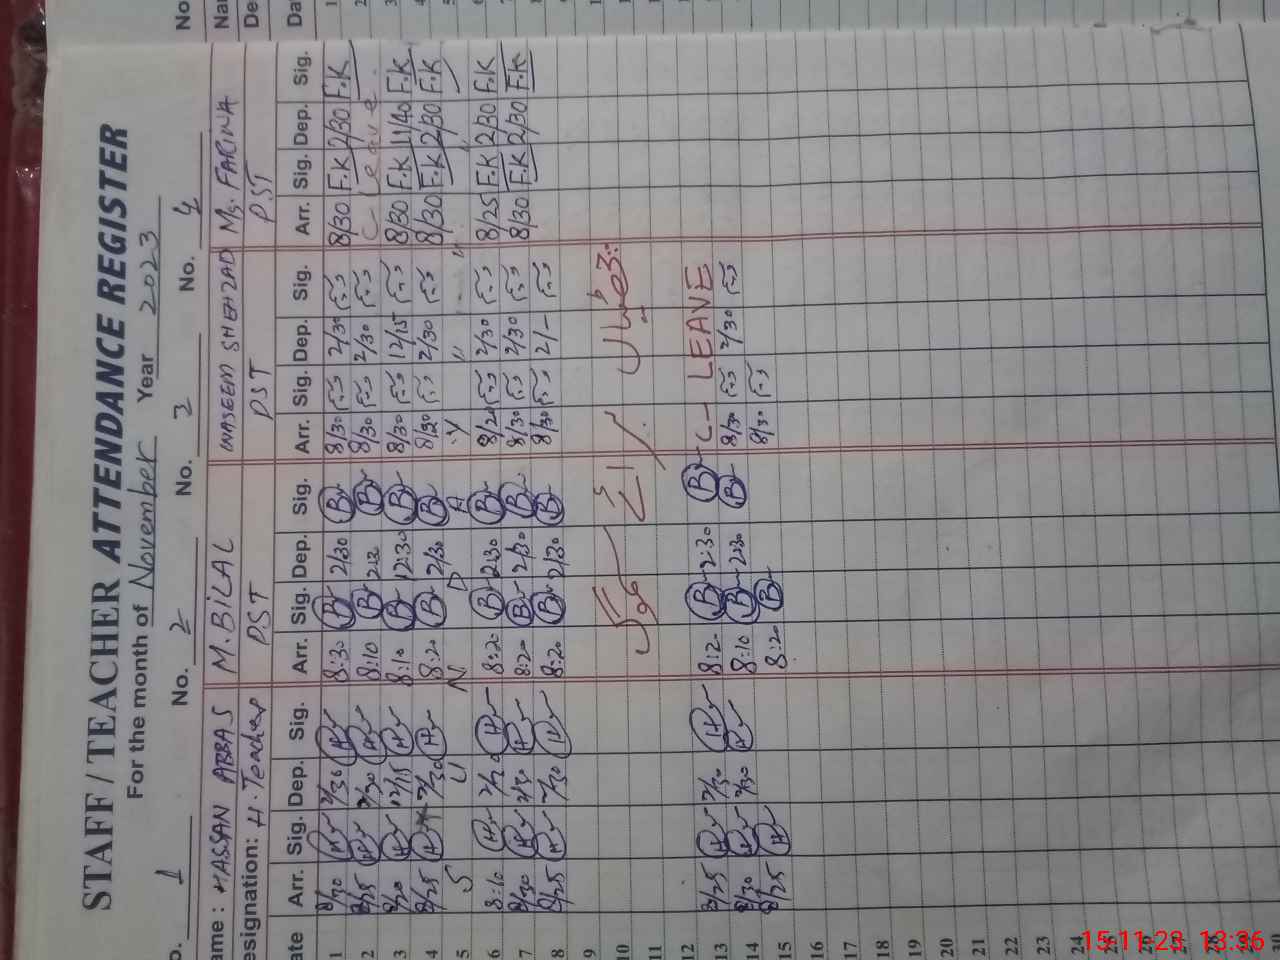 STAFF / TEACHER ATTENDANCE REGISTER
For the month of November Year 2023
No. 1 No. 2 No. 3 No. 4
ame : HASSAN ABBAS M. BILAL WASEEM SHEHZAD Ms. FARINA
esignation: H. Teacher PST PST PST
ate Arr. Sig. Dep. Sig. Arr. Sig. Dep. Sig. Arr. Sig. Dep. Sig. Arr. Sig. Dep. Sig.
1 8/30 2/30 8:30 2/30 8/30 2/30 8/30 F.K 2/30 F.K
2 8/25 2/30 8:10 2:30 8/30 2/30 C leave
3 8/20 12/15 8:10 12:30 8/30 12/15 8/30 F.K 11/40 F.K
4 8/25 2/30 8:20 2/30 8/30 2/30 8/30 F.K 2/30 F.K
5 S U N D A Y
6 8:10 2/30 8:20 2:30 8/20 2/30 8/25 F.K 2/30 F.K
7 8/30 2/30 8:20 2/30 8/30 2/30 8/30 F.K 2/30 F.K
8 8/25 2/30 8:20 2/30 8/30 2/-
9
10
11
12
13 8/25 2/30 8:20 2:30 C- LEAVE
14 8/30 2/30 8:10 2:30 8/30 2/30
15 8/25 8:20 8/30
16
17
18
19
20
21
22
23
24
25
26
27
28
29
30
No
Na
De
Da
1
2
3
4
5
6
7
8
15-11-23 13:36